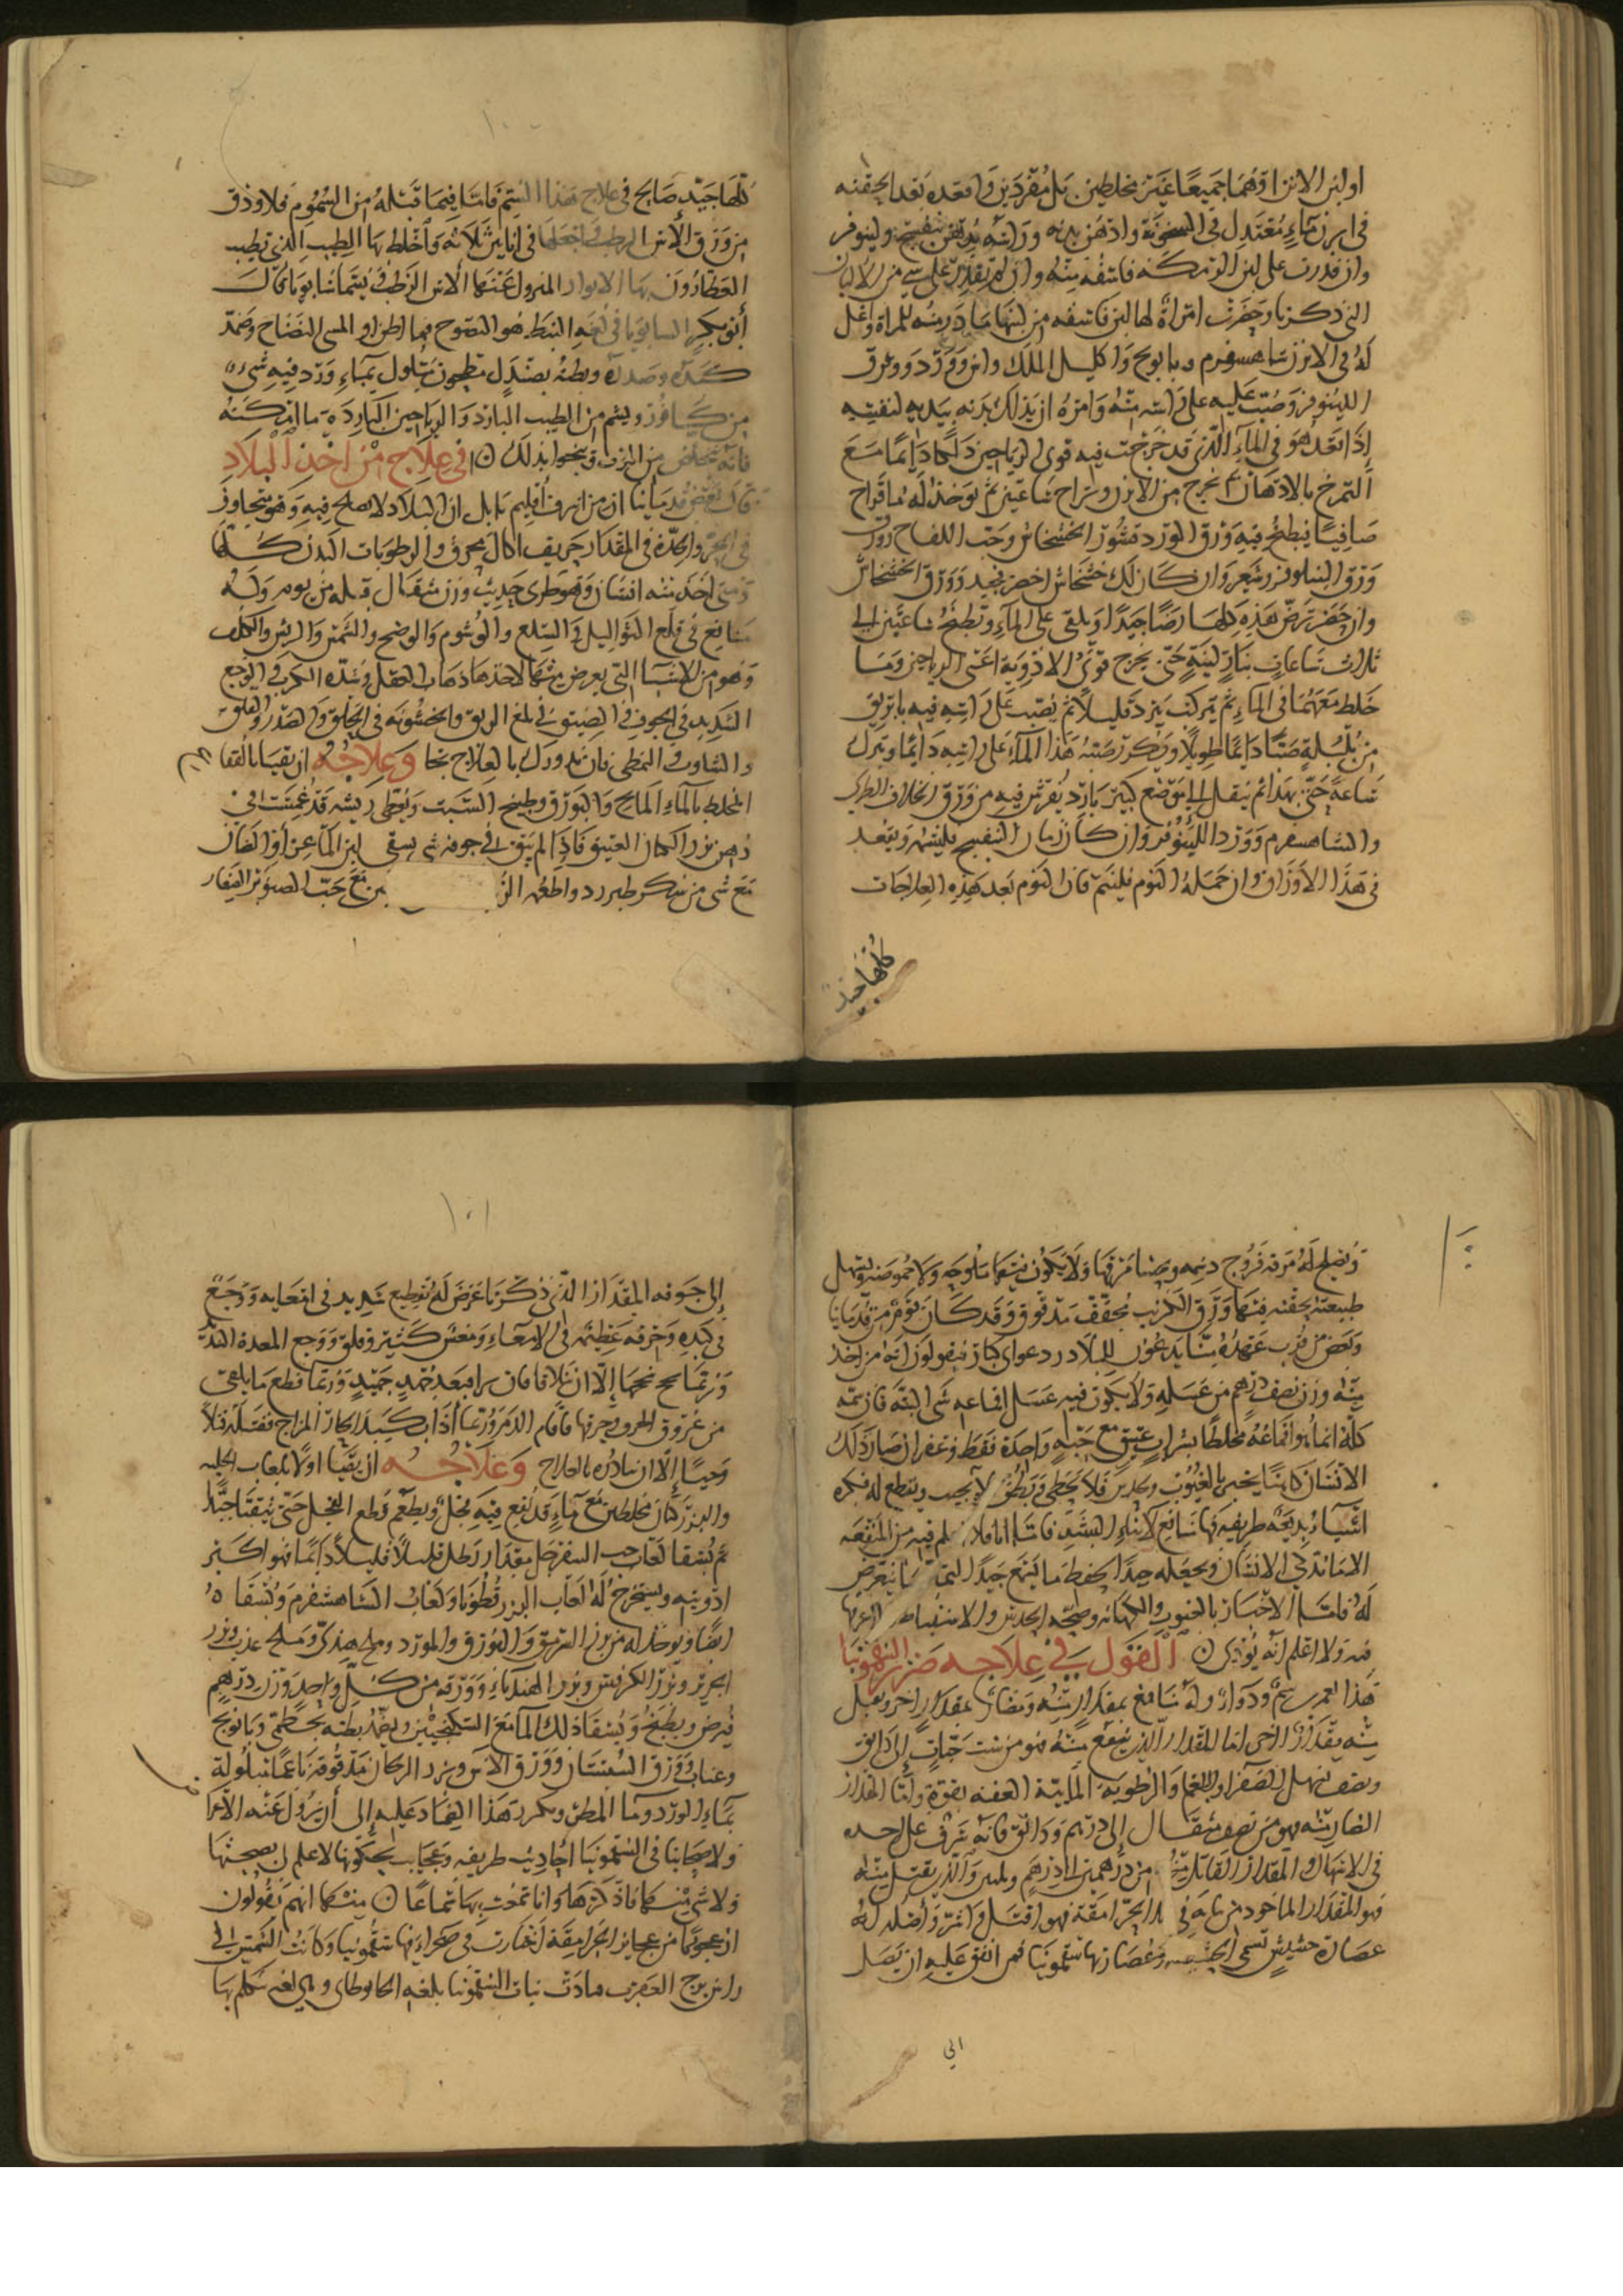 او لبن الاتن او هما جميعا غير مخلطين بل مفردين واقعده بعد الحقنه
في ابزن ماء معتدل في السخونة وادهن بدنه وراسه بدهن بنفسج ولينوفر
وان قدرت على لبن الرمكه فاسقه منه وان لم تقدر على شي من الالبان
التي ذكرنا وحضرت امراة لها لبن فاسقه من لبنها
له في الابزن شاهسفرم وبابونج واكليل الملك وورد وورق
اللينوفر وصب عليه على راسه منه وامره ان يدلك بدنه بيديه لنفسه
اذا قعد هو في الماء الذي قد خرجت فيه قوى الرياحين دلكا دائما مع
التمرخ بالادهان ثم يخرج من الابزن ويراح ساعتين ثم يوخذ له ماء قراح
صافيا فيطبخ فيه ورق الورد وقشور الخشخاش وحب اللفاح
ورق النيلوفر وشعير وان كان لك خشخاش اخضر فجيد وورق الخشخاش
وان حضر ترض هذه كلها رضا جيدا ويلقى على الماء ويطبخ ساعتين الى
ثلاث ساعات بنار لينة حتى يخرج قوى الادوية اعني الرياحين وما
خلط معها في الماء ثم يترك يبرد قليلا ثم يصب على راسه فيه بابريق
من بلبلة صبا دائما طويلا ويكرر صب هذا الماء على راسه دائما ويترك
ساعة حتى يهدا ثم ينقل الى موضع كبير بارد يفرش فيه من ورق الخلاف الطري
والشاهسفرم وورد اللينوفر وان كان زمان البنفسج فليشمه ويقعد
في هذا الاوزان وان حمله النوم فلينم فان النوم بعد هذه العلاجات
كلها جيد
١٠٠
كلها جيد صالح في علاج هذا السم فاما فيما قبله من السموم فلا وذق
من ورق الاس الرطب واجعلها في انا ثلاثة واخلط بها الطيب الذي يطيب
العطارون بها
ابو بكر السابويا في لغه النبط هو النضوح
كبده وصدره وبطنه بصندل مطحون مبلول بماء ورد فيه شيء
من كافور ويشم من الطيب البارد والرياحين الباردة ما امكنه
فانه يتخلص من الموت وينجو بذلك في علاج من اخذ البلادر
قال بعض قدمائنا ان من اشرف اقليم بابل ان البلادر لا يصلح فيه وهو متجاوز
في الحر والحدة في المقدار حريف اكال محرق والرطوبات البدن كلها
ومتى اخذ منه انسان وهو طري حديث وزن مثقال قتله من يومه وله
منافع في قلع الثواليل والسلع والوشوم والوضح والنمش والبرش والكلف
وهو من الاشيا التي يعرض منها لاخذها ذهاب العقل وشدة الكرب والوجع
الشديد في الجوف والضيق في بلع الريق والخشونه في الحلق والهذر والقلق
والتثاوب والتمطي فان تدورك بالعلاج نجا وعلاجه ان يقيا بالفقا
المخلط بالماء المالح والبورق وطبيخ الشبت ويعطى ريشه قد غمست في
دهن بزر الكتان العتيق فاذا لم يبق في جوفه شي يسقى لبن الماعز او الضان
مع شي من سكر طبرزد واطعمه
مع حب الصنوبر الصغار
ويصلح له مرقه فروج دسمه ويحسا مرقها ولا يكون فيها ملوحه ولا حموضه ويسهل
طبيعته بحقنه فيها ورق الكرنب مجفف مدقوق وقد كان قوم من قدمائنا
وبعض من قرب عهده منا يدعون للبلادر دعوى كبار فيقولون انه من اخذ
منه وزن نصف درهم من عسله ولا يكون فيه عسل
كله انما هو اقماعه مخلطا بشراب عتيق مع حبة واحدة فقط وزعفران صار ذلك
الانسان كاهنا يخبر بالغيوب ويحدس فلا يخطي ويظن لا يخيب ويقطع له فكره
اشياء بديعة طريفه فيها منافع لابناء البشر فاما انا فلا اعلم فيه من المنفعه
الا ما يذكي الانسان ويجعله جيد الحفظ ما يسمع جيد
له فاما الاخبار بالغيوب والكهانه وصحه الحدس والاستنباط
فيه ولا اعلم انه يوذي القول في علاجه ضرر السقمونيا
هذا العمر سم ودوا وله منافع بمقدار منه ومضار بمقدار اخر ويقتل
منه بمقدار اخر اما المقدار الذي ينفع منه فهو من ست حبات الى دانق
ونصف يسهل الصفرا والبلغم والرطوبه المايية العفنه بقوة واما المقدار
الضار منه فهو من نصف مثقال الى درهم ودانق فانه يشرف على اخذه
في الانهاك والمقدار القاتل منه من درهمين الى درهم وثلثين والذي يقتل منه
فهو المقدار الماخوذ من نباته في بلد الجرامقة فهو اقتل واشر واصله له
عصارة حشيش تسمى وعصارتها سقمونيا فمن اتفق عليه ان يصل
الى
١٠١
الى جوفه المقدار الذي ذكرنا عرض له تقطيع شديد في امعايه ووجع
في كبده وحرقه عظيمه في الامعاء ومغس كثير وقلق ووجع المعدة
وربما سحج سحجا الا ان تلافا فان برا فبعد جهد جهيد وربما قطع ما يلقى
من عروق الجوف وجرحها فاقام الدم وربما اذاب كبد الحار المزاج فقتله قتلا
وحيا الا ان يبادره بالعلاج وعلاجه ان يقيا اولا بلعاب الحلبه
والبزر كتان مخلطين مع ماء قد نقع فيه فجل ويطعم قطع الفجل حتى يتقيا جيدا
ثم يسقا لعاب حب السفرجل مقدار رطل قليلا قليلا دائما فهو اكبر
ادويته ويستخرج له لعاب البزر قطونا ولعاب الشاهسفرم ويسقاه
ايضا ويوخذ له من بزر السرمق والبورق والمورد وملح هندي وملح عذب وبزر
الجزر وبزر الكرفس وبزر الهندباء وورقه من كل واحد وزن درهم
فيرض ويطبخ ويسقا ذلك الما مع السكنجبين ويضمد بطنه بخطمي وبابونج
وعناب وورق السفستان وورق الاس وبزر الريحان مدقوقة ناعما مبلولة
بماء الورد وما المطر ويكرر هذا الضماد عليه الى ان يزول عنه الاعرا
ولاصحابنا في السقمونيا احاديث طريفه وعجايب يحكونها لا علم لي بصحتها
ولا شي منها فاذكرها وانا سمعت بها سماعا منها انهم يقولون
ان عجوزا من عجايز الجرامقة اختارت في صحراء فيها سقمونيا وكانت الشمس في
راس برج العقرب فنادت نبات السقمونيا بلغه وهي لغه تتكلم بها